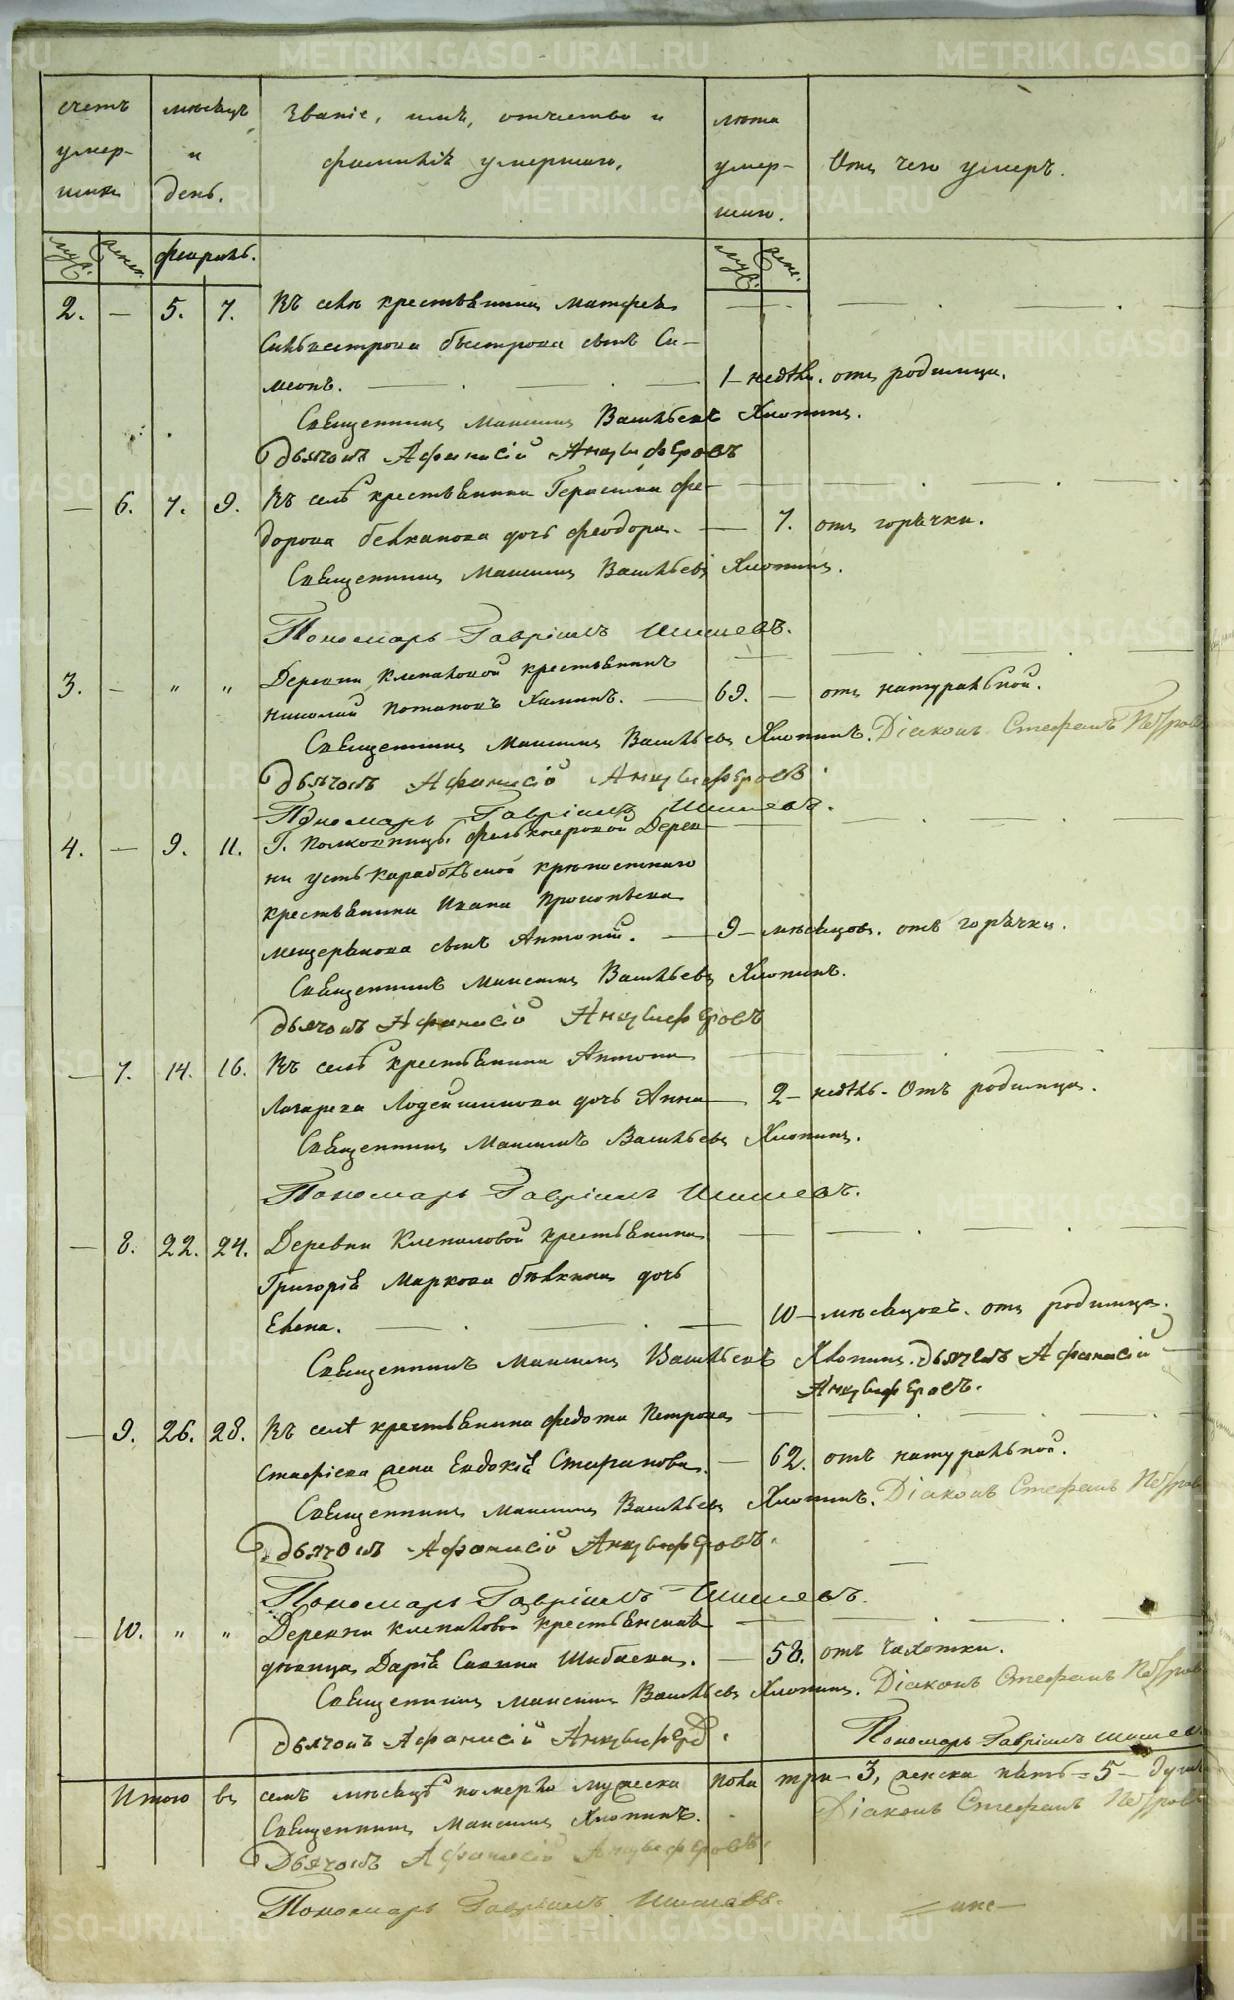 счетъ умер-шихъ
мѣсяцъ и день.
Званіе, имя, отчество и фамилія умершаго.
лѣта умер-шаго.
Отъ чего умеръ.
муж. женс. февраль. муж. женс.
2. — 5. 7. Въ селѣ крестьянина Матфея
Сильвестрова Быстрова сынъ Си-
меонъ. — 1 — недѣли. отъ родимца.
Священникъ Максимъ Васильевъ Хлопинъ.
Дьячокъ Афанасій Анкудиновъ
— 6. 7. 9. Въ селѣ крестьянина Герасима Фе-
дорова дочь Феодора. — 7. отъ горячки.
Священникъ Максимъ Васильевъ Хлопинъ.
Пономарь Гавріилъ Шишевъ.
3. — " " Деревни Клепаловой крестьянинъ
Николай Потаповъ Химинъ. — 69. — отъ натуральной.
Священникъ Максимъ Васильевъ Хлопинъ. Діаконъ Стефанъ Петровъ
Дьячокъ Афанасій
Пономарь Гавріилъ Шишевъ.
4. — 9. 11. Г. Полковницы Деревни
ни Усть Карабольской крѣпостнаго
крестьянина Ивана Прокопьева
Мещерякова сынъ Антоній. — 9 — мѣсяцовъ. отъ горячки.
Священникъ Максимъ Васильевъ Хлопинъ.
Дьячокъ Афанасій
— 7. 14. 16. Въ селѣ крестьянина Антона
Лазарева Лодейщикова дочь Анна — 2 — недѣль. Отъ родимца.
Священникъ Максимъ Васильевъ Хлопинъ.
Пономарь Гавріилъ Шишевъ.
— 8. 22. 24. Деревни Клепаловой крестьянина
Григорія Маркова дочь
Елена. — 10 — мѣсяцовъ. отъ родимца.
Священникъ Максимъ Васильевъ Хлопинъ. Дьячокъ Афанасій
— 9. 26. 28. Въ селѣ крестьянина Федота Петрова
жена Евдокія Стефанова. — 62. отъ натуральной.
Священникъ Максимъ Васильевъ Хлопинъ. Діаконъ Стефанъ Петровъ
Дьячокъ Афанасій
Пономарь Гавріилъ Шишевъ.
— 10. " " Деревни Клепаловой крестьянская
дѣвица Дарія Савина Шибаева. — 58. отъ чахотки.
Священникъ Максимъ Васильевъ Хлопинъ. Діаконъ Стефанъ Петровъ
Дьячокъ Афанасій
Пономарь Гавріилъ Шишев
Итого въ семъ мѣсяцѣ померло мужеска пола три — 3, женска пять = 5 — душъ
Священникъ Максимъ Хлопинъ. Діаконъ Стефанъ Петровъ
Дьячокъ Афанасій
Пономарь Гавріилъ Шишевъ.